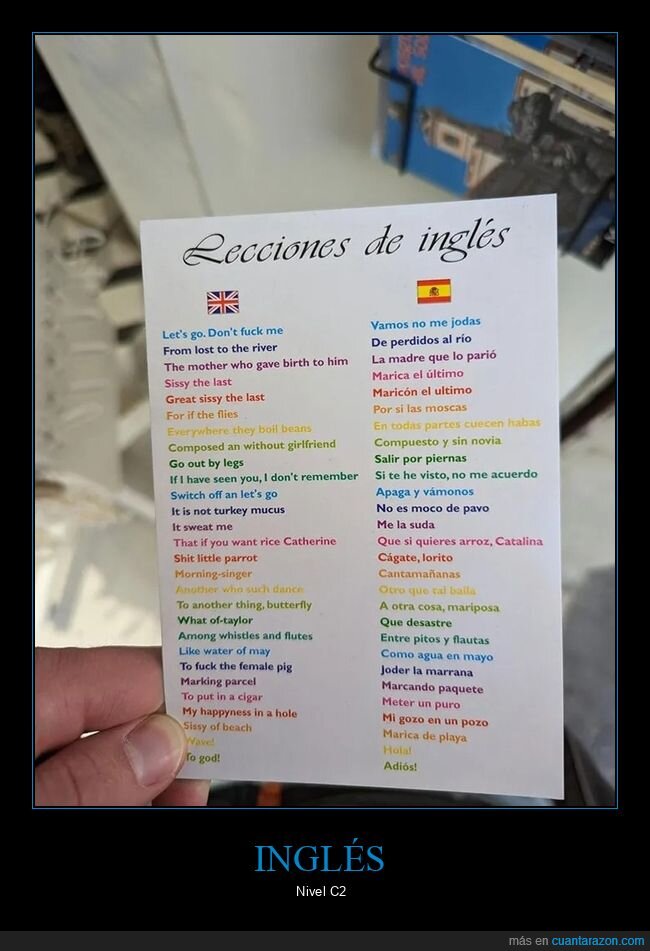 Lecciones de inglés
Let's go. Don't fuck me
From lost to the river
The mother who gave birth to him
Sissy the last
Great sissy the last
For if the flies
Everywhere they boil beans
Composed an without girlfriend
Go out by legs
If I have seen you, I don't remember
Switch off an let's go
It is not turkey mucus
It sweat me
That if you want rice Catherine
Shit little parrot
Morning-singer
Another who such dance
To another thing, butterfly
What of-taylor
Among whistles and flutes
Like water of may
To fuck the female pig
Marking parcel
To put in a cigar
My happyness in a hole
Sissy of beach
Wave!
To god!
Vamos no me jodas
De perdidos al río
La madre que lo parió
Marica el último
Maricón el ultimo
Por si las moscas
En todas partes cuecen habas
Compuesto y sin novia
Salir por piernas
Si te he visto, no me acuerdo
Apaga y vámonos
No es moco de pavo
Me la suda
Que si quieres arroz, Catalina
Cágate, lorito
Cantamañanas
Otro que tal baila
A otra cosa, mariposa
Que desastre
Entre pitos y flautas
Como agua en mayo
Joder la marrana
Marcando paquete
Meter un puro
Mi gozo en un pozo
Marica de playa
Hola!
Adiós!
INGLÉS
Nivel C2
más en cuantarazon.com